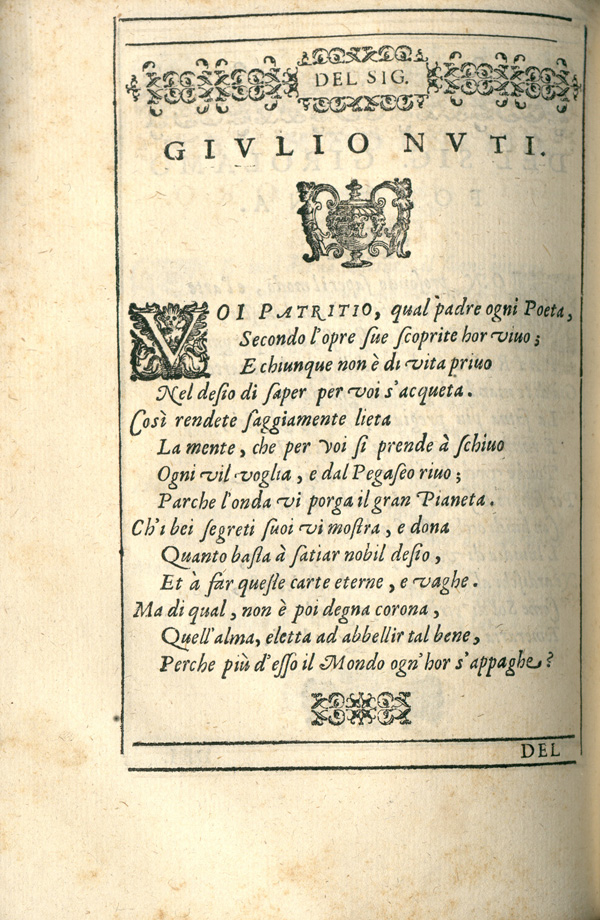 DEL SIG.
GIVLIO NVTI.
VOI PATRITIO, qual padre ogni Poeta,
Secondo l'opre sue scoprite hor viuo;
E chiunque non è di vita priuo
Nel desio di saper per voi s'acqueta.
Così rendete saggiamente lieta
La mente, che per voi si prende à schiuo
Ogni vil voglia, e dal Pegaseo riuo;
Parche l'onda vi porga il gran Pianeta.
Ch'i bei segreti suoi vi mostra, e dona
Quanto basta à satiar nobil desio,
Et à far queste carte eterne, e vaghe.
Ma di qual, non è poi degna corona,
Quell'alma, eletta ad abbellir tal bene,
Perche più d'esso il Mondo ogn'hor s'appaghe?
DEL